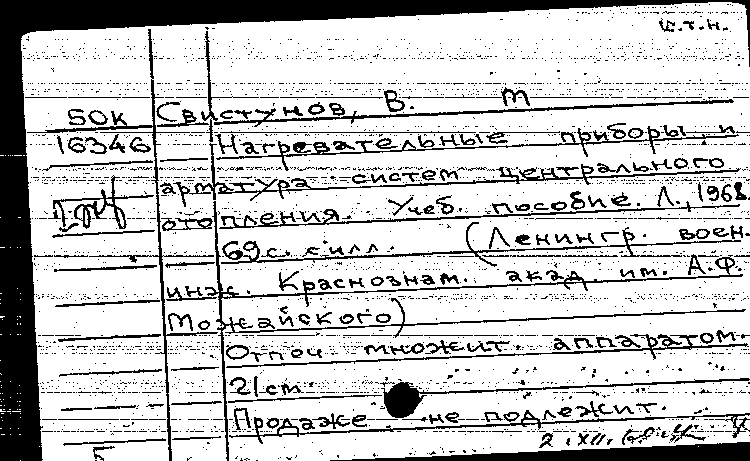 к.т.н.
50к Свистунов, В. М
16346 Нагревательные приборы и
арматура систем центрального
отопления. Учеб. пособие. Л., 1968.
69с. силл. (Ленингр. воен.
инж. Краснознам. акад. им. А.Ф.
Можайского)
Отпеч. множит. аппаратом.
21см.
Продаже не подлежит.
2.XII.